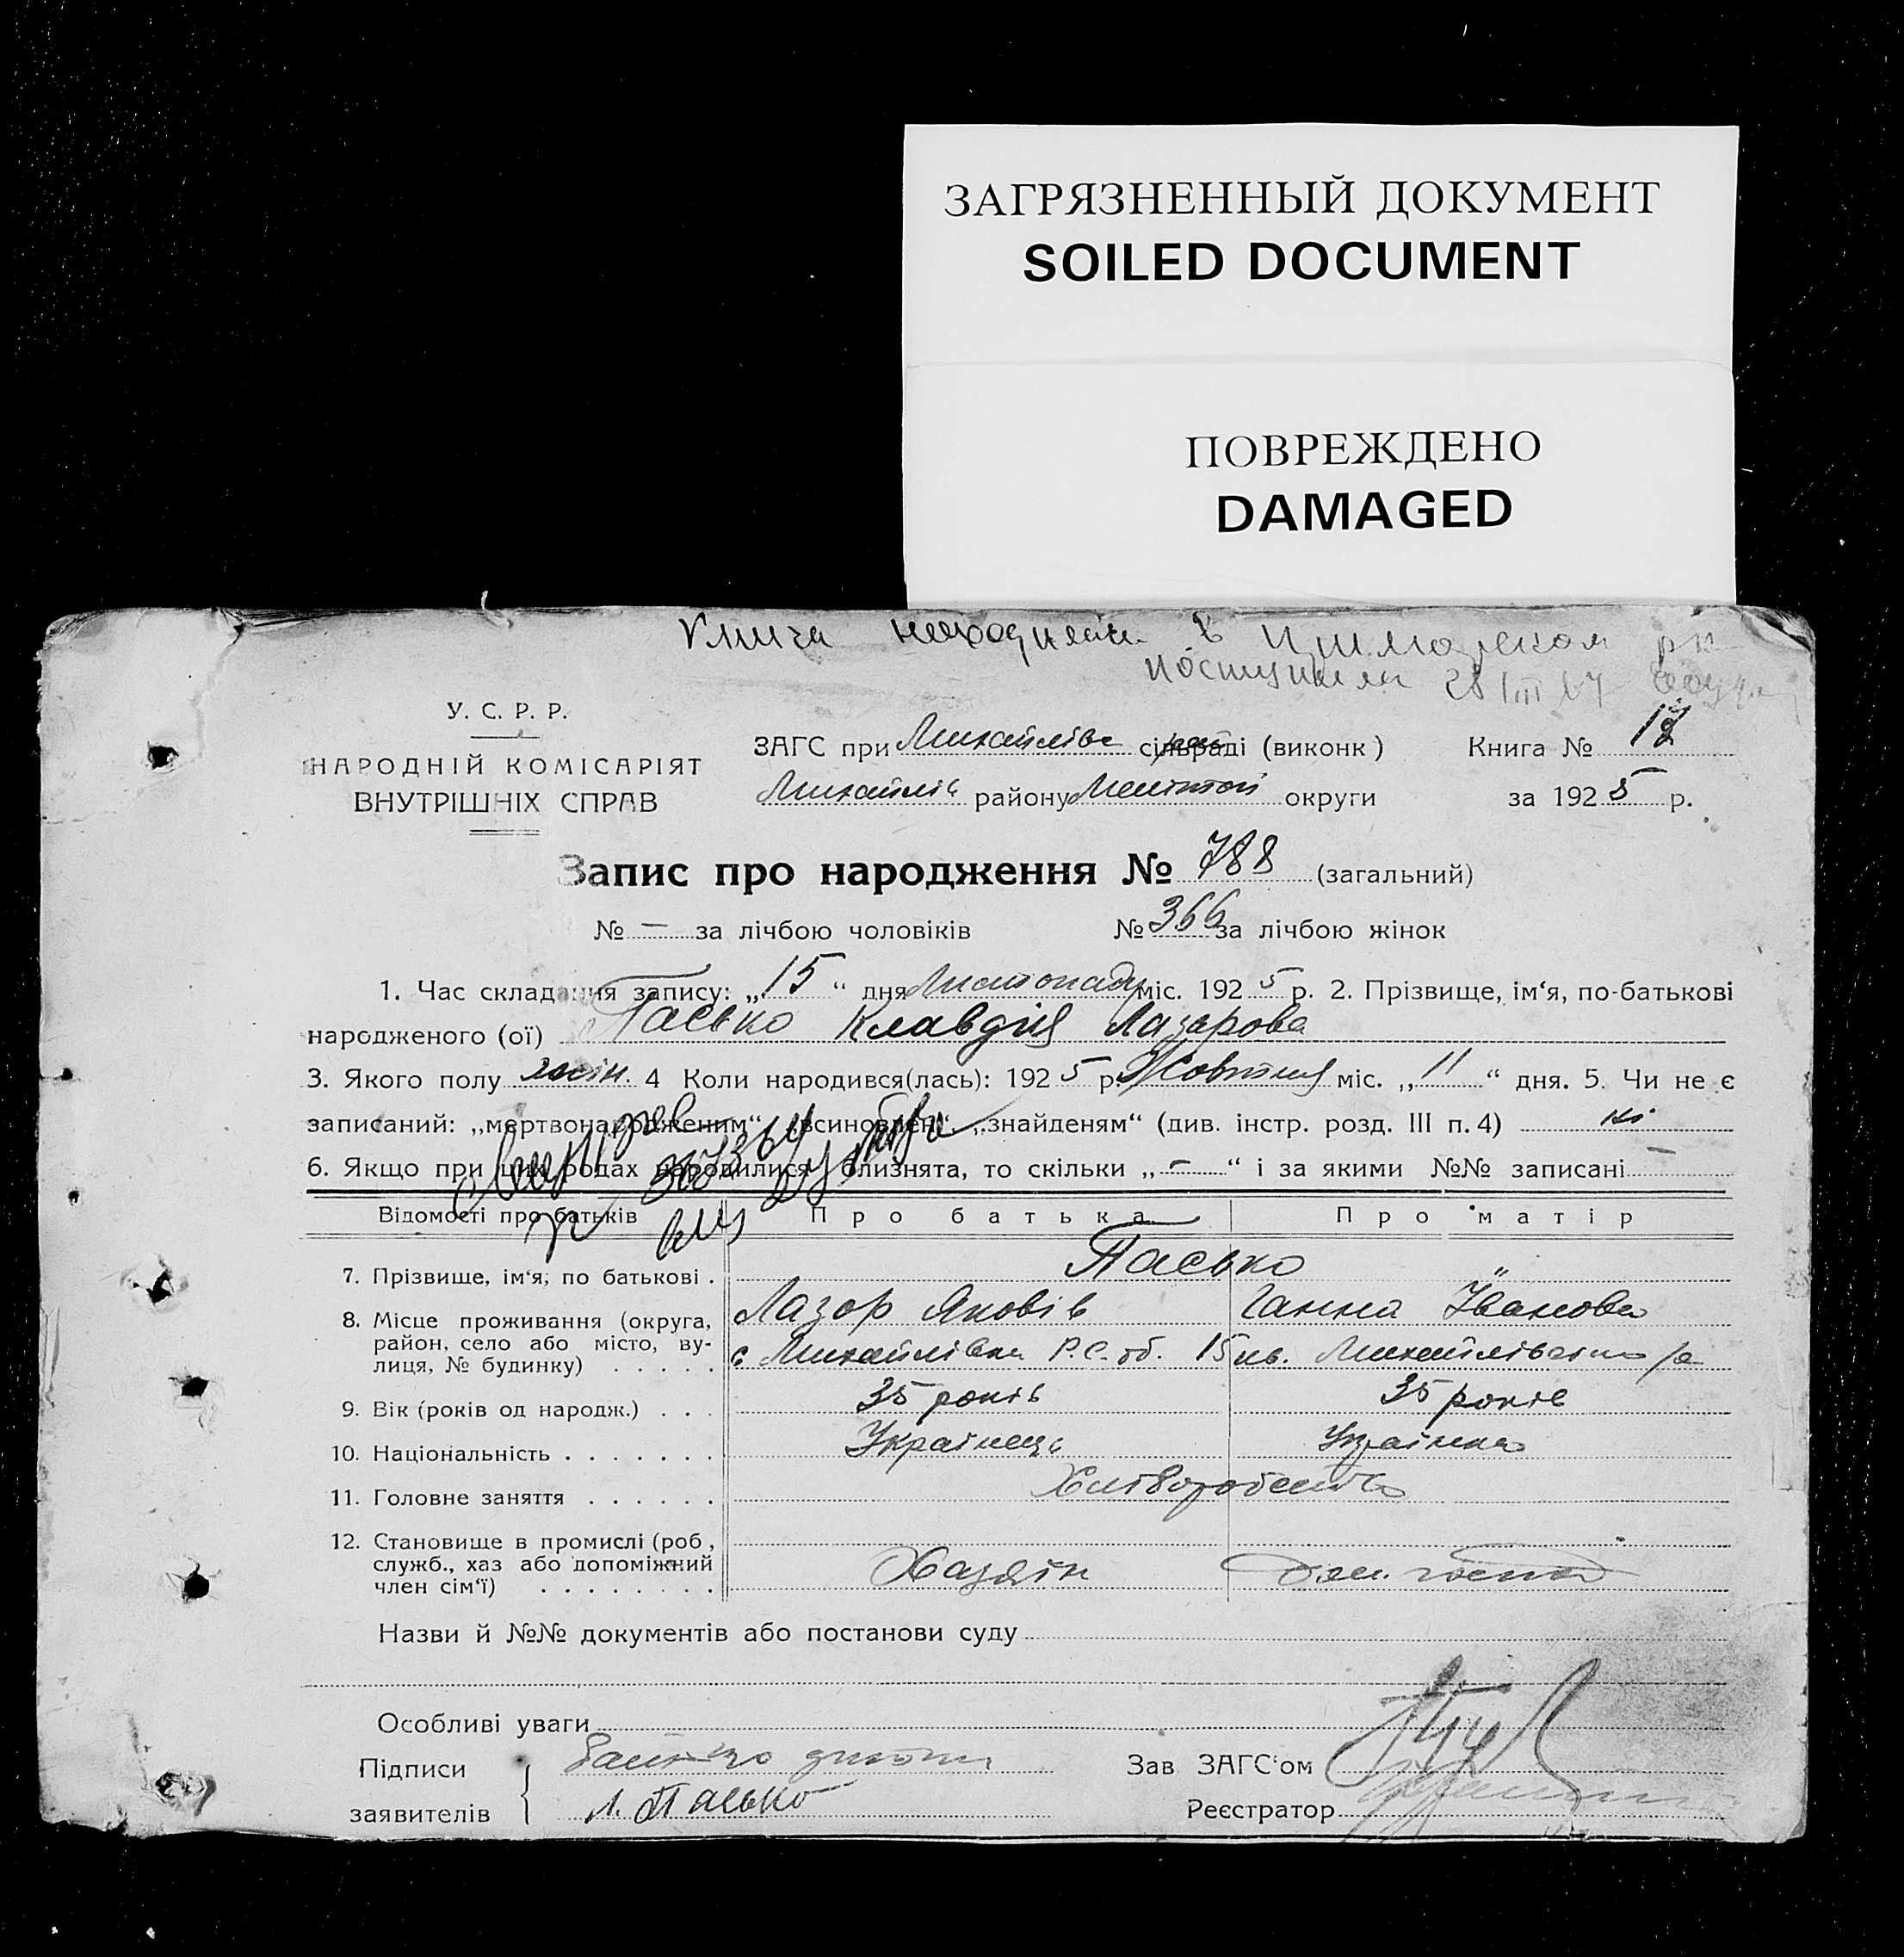 ЗАГРЯЗНЕННЫЙ ДОКУМЕНТ
SOILED DOCUMENT
ПОВРЕЖДЕНО
DAMAGED
Книга находилась в
поступила 28
У. С. Р. Р.
НАРОДНІЙ КОМІСАРІЯТ
ВНУТРІШНІХ СПРАВ
ЗАГС при Михайлівс сільраді (виконк) Книга № 12
Михайлів району Меліт округи за 1925 р.
Запис про народження № 788 (загальний)
№ — за лічбою чоловіків № 366 за лічбою жінок
1. Час складання запису: „15“ дня Листопаду міс. 1925 р. 2. Прізвище, ім‘я, по-батькові
народженого (ої) Пасько Клавдія Лазарова
3. Якого полу жін. 4 Коли народився(лась): 1925 р. Жовтня міс. „11“ дня. 5. Чи не є
записаний: „мертвонародженим“, „всиновлен“, „знайденям“ (див. інстр. розд. III п. 4) ні
6. Якщо при цих родах народилися близнята, то скільки „—“ і за якими №№ записані —
Відомості про батьків Про батька Про матір
7. Прізвище, ім‘я, по батькові . Пасько
Лазор Яковів Ганна Їванова
8. Місце проживання (округа,
район, село або місто, ву-
лиця, № будинку) . . . . .
с Михайлівка Р.С. об. 15 кв. Михайлівсько
9. Вік (років од народж.) . . . 35 років 35 років
10. Національність . . . . . . . Українець Українка
11. Головне заняття . . . . . . Хліборобство
12. Становище в промислі (роб ,
служб., хаз або допоміжний
член сім‘ї) . . . . . . . .
Хазяїн Дом.
Назви й №№ документів або постанови суду
Особливі уваги
Підписи
заявителів
Батько дитини
Л. Пасько
Зав ЗАГС‘ом
Реєстратор